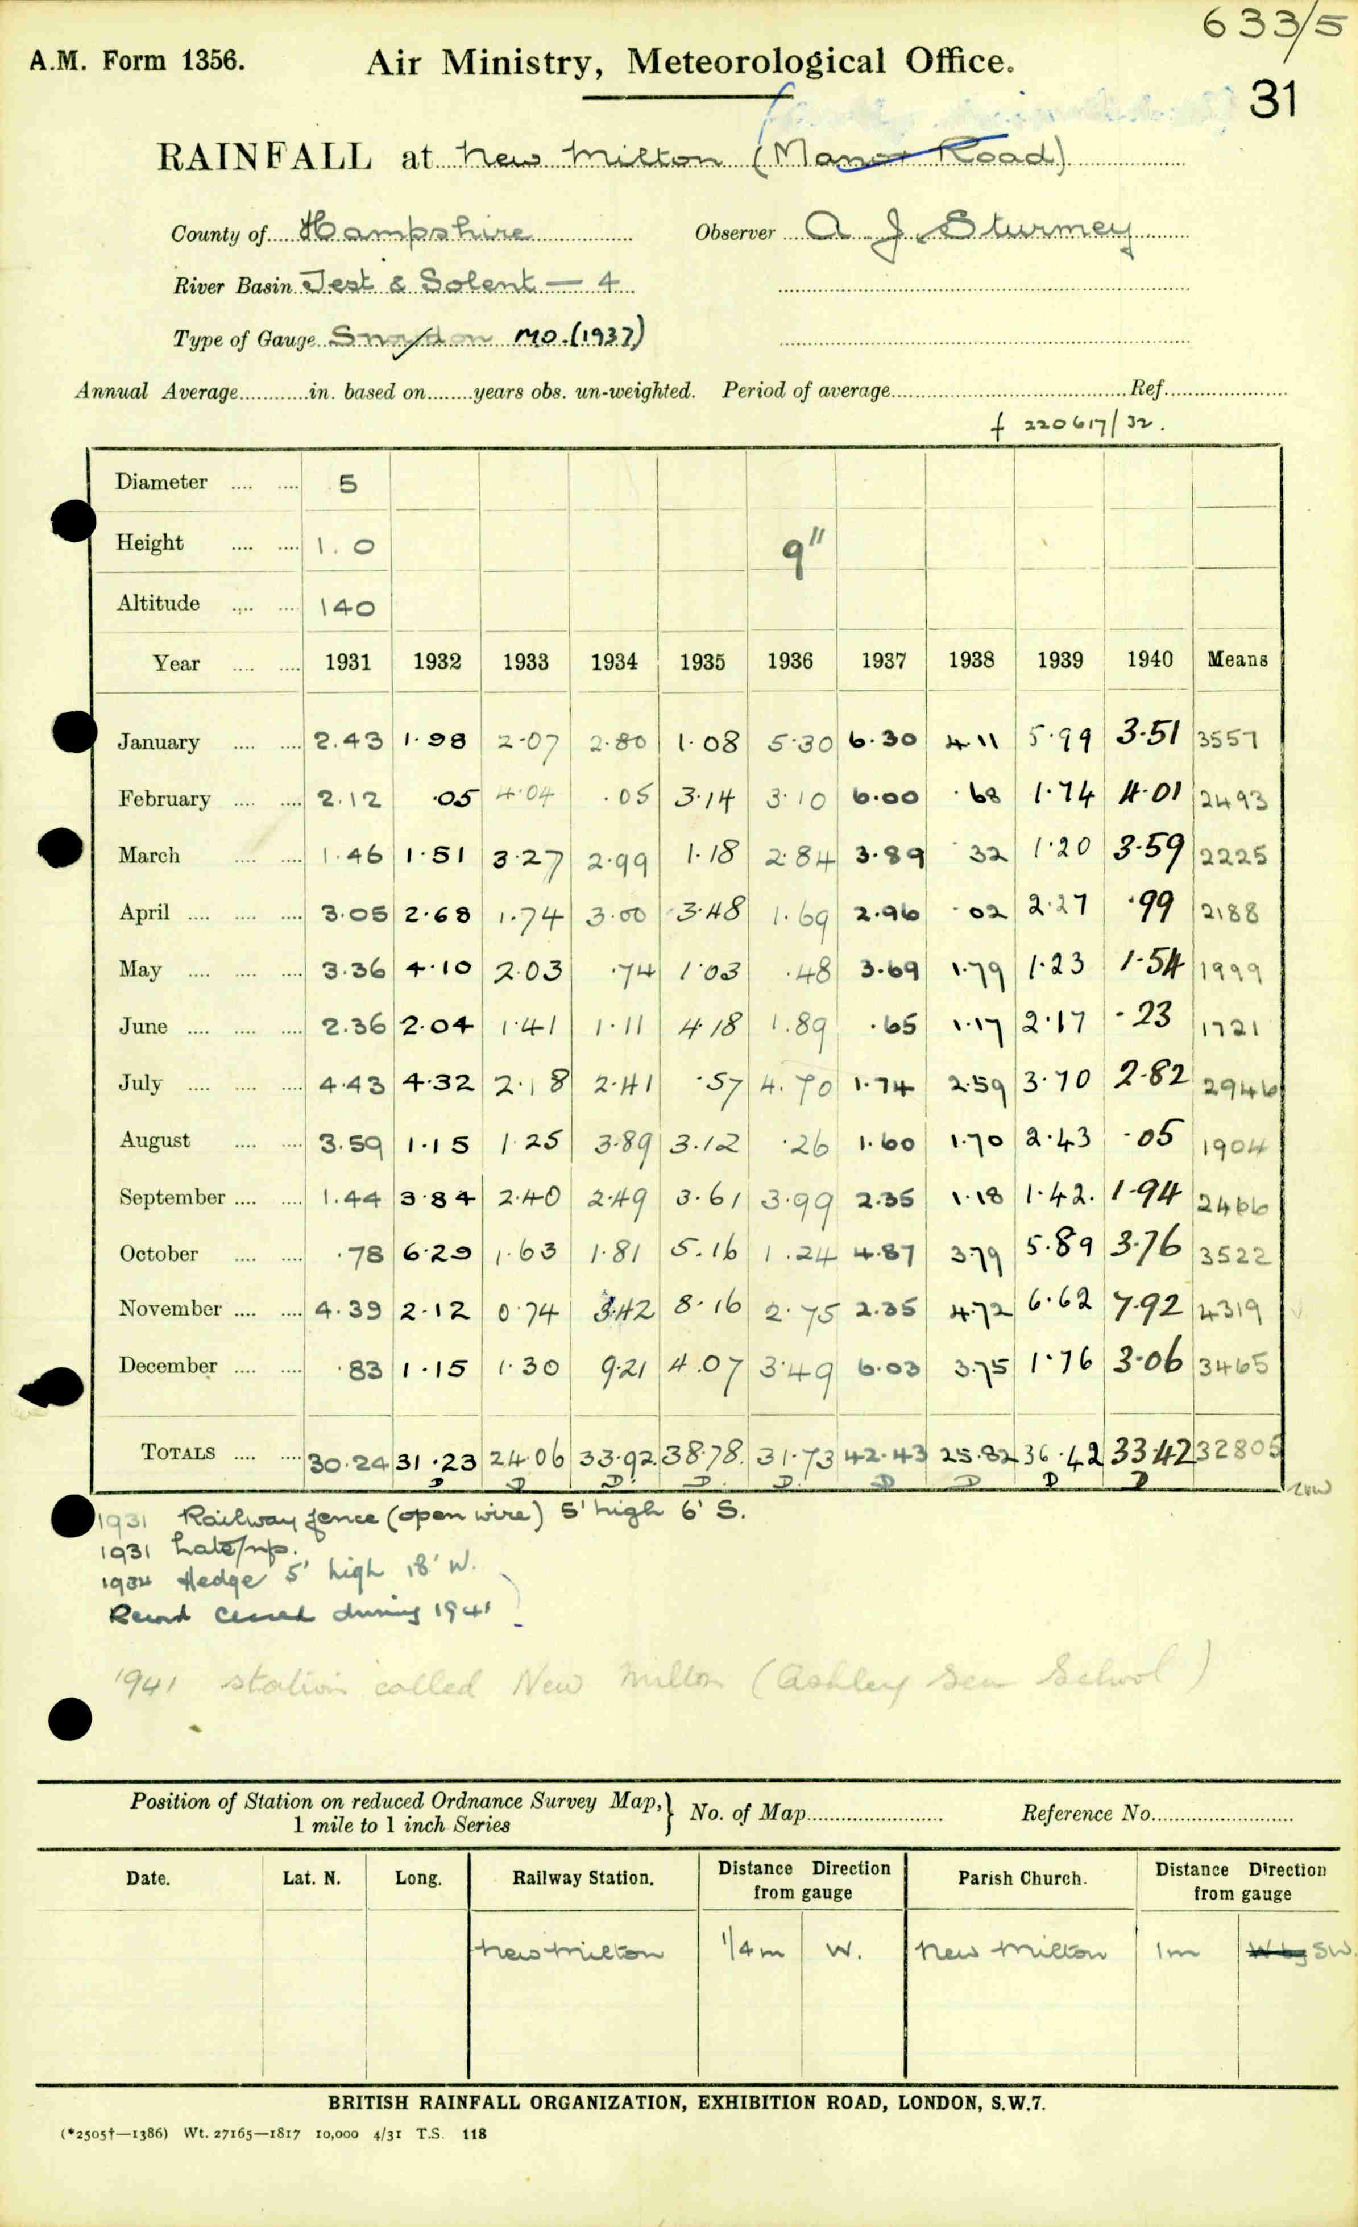 633/5
A.M. Form 1356. Air Ministry, Meteorological Office.
31
RAINFALL at New Milton (Manor Road)
County of Hampshire Observer A J Sturmey
River Basin Test & Solent — 4
Type of Gauge Snowdon MO. (1937)
Annual Average............in. based on........years obs. un-weighted. Period of average........................................Ref.....................
f 220617/32.
Diameter .... .... 5
Height .... .... 1.0 9"
Altitude .... .... 140
Year .... .... 1931 1932 1933 1934 1935 1936 1937 1938 1939 1940 Means
January .... .... 2.43 1.98 2.07 2.80 1.08 5.30 6.30 4.11 5.99 3.51 3557
February .... .... 2.12 .05 4.04 .05 3.14 3.10 6.00 .68 1.74 4.01 2493
March .... .... 1.46 1.51 3.27 2.99 1.18 2.84 3.89 32 1.20 3.59 2225
April .... .... .... 3.05 2.68 1.74 3.00 3.48 1.69 2.96 .02 2.27 .99 2188
May .... .... .... 3.36 4.10 2.03 .74 1.03 .48 3.69 1.79 1.23 1.54 1999
June .... .... .... 2.36 2.04 1.41 1.11 4.18 1.89 .65 1.17 2.17 .23 1721
July .... .... .... 4.43 4.32 2.18 2.41 .57 4.70 1.74 2.59 3.70 2.82 2946
August .... .... 3.59 1.15 1.25 3.89 3.12 .26 1.60 1.70 2.43 .05 1904
September .... .... 1.44 3.84 2.40 2.49 3.61 3.99 2.35 1.18 1.42. 1.94 2466
October .... .... .78 6.29 1.63 1.81 5.16 1.24 4.87 3.79 5.89 3.76 3522
November .... .... 4.39 2.12 0.74 3.42 8.16 2.75 2.35 4.72 6.62 7.92 4319
December .... .... .83 1.15 1.30 9.21 4.07 3.49 6.03 3.75 1.76 3.06 3465
TOTALS .... .... 30.24 31.23 24.06 33.92. 38.78. 31.73 42.43 25.82 36.42 33.42 32805
D D D. D. D. D D D D
1931 Railway fence (open wire) 5' high 6' S.
1931 Late/np.
1934 Hedge 5' high 18' W.
Record ceased during 1941
1941 station called New Milton (Ashley Sen School)
Position of Station on reduced Ordnance Survey Map,} No. of Map........................ Reference No.........................
1 mile to 1 inch Series
Date. Lat. N. Long. Railway Station. Distance Direction from gauge Parish Church. Distance Direction from gauge
New Milton 1/4 m W. New Milton 1m W by SW.
BRITISH RAINFALL ORGANIZATION, EXHIBITION ROAD, LONDON, S.W.7.
(*2505†—1386) Wt. 27165—1817 10,000 4/31 T.S. 118